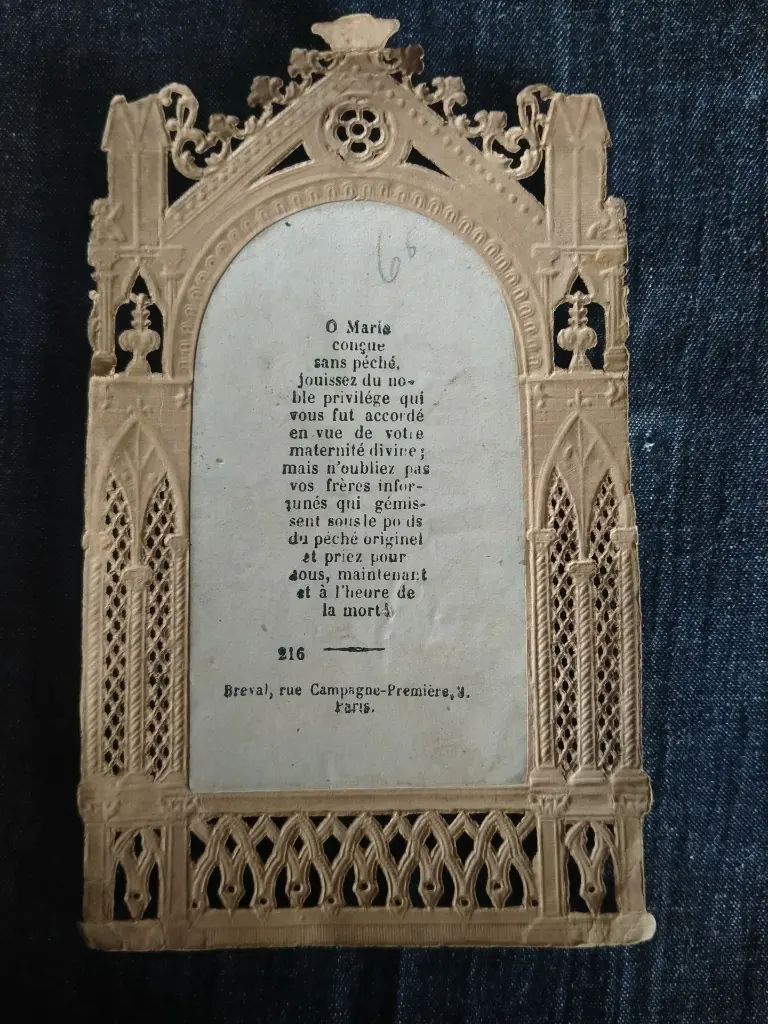 6 6
O Marie
conçue
sans péché,
jouissez du no-
ble privilége qui
vous fut accordé
en vue de votre
maternité divine;
mais n'oubliez pas
vos frères infor-
tunés qui gémis-
sent sous le poids
du péché originel
et priez pour
nous, maintenant
et à l'heure de
la mort!
216
Breval, rue Campagne-Première, 3.
Paris.